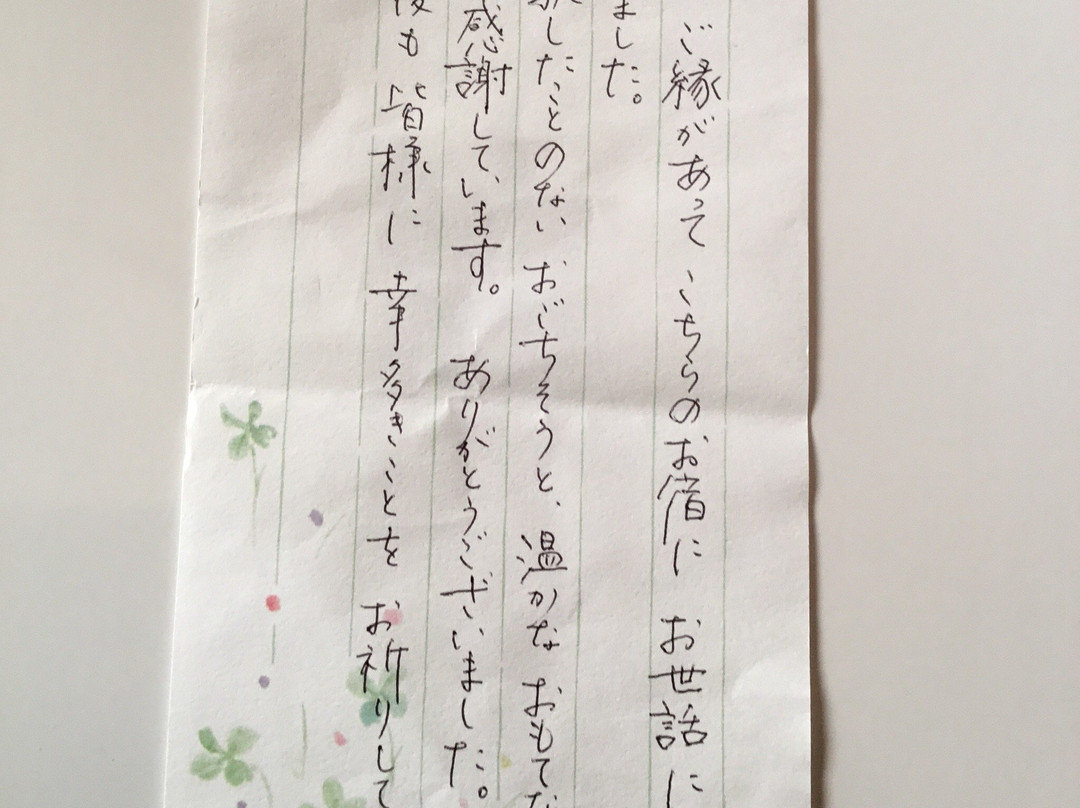 ご縁があって こちらのお宿に お世話に
ました。
したことのない おごちそうと、温かな おもてな
感謝しています。 ありがとうございました。
も 皆様に 幸多きことを お祈りして